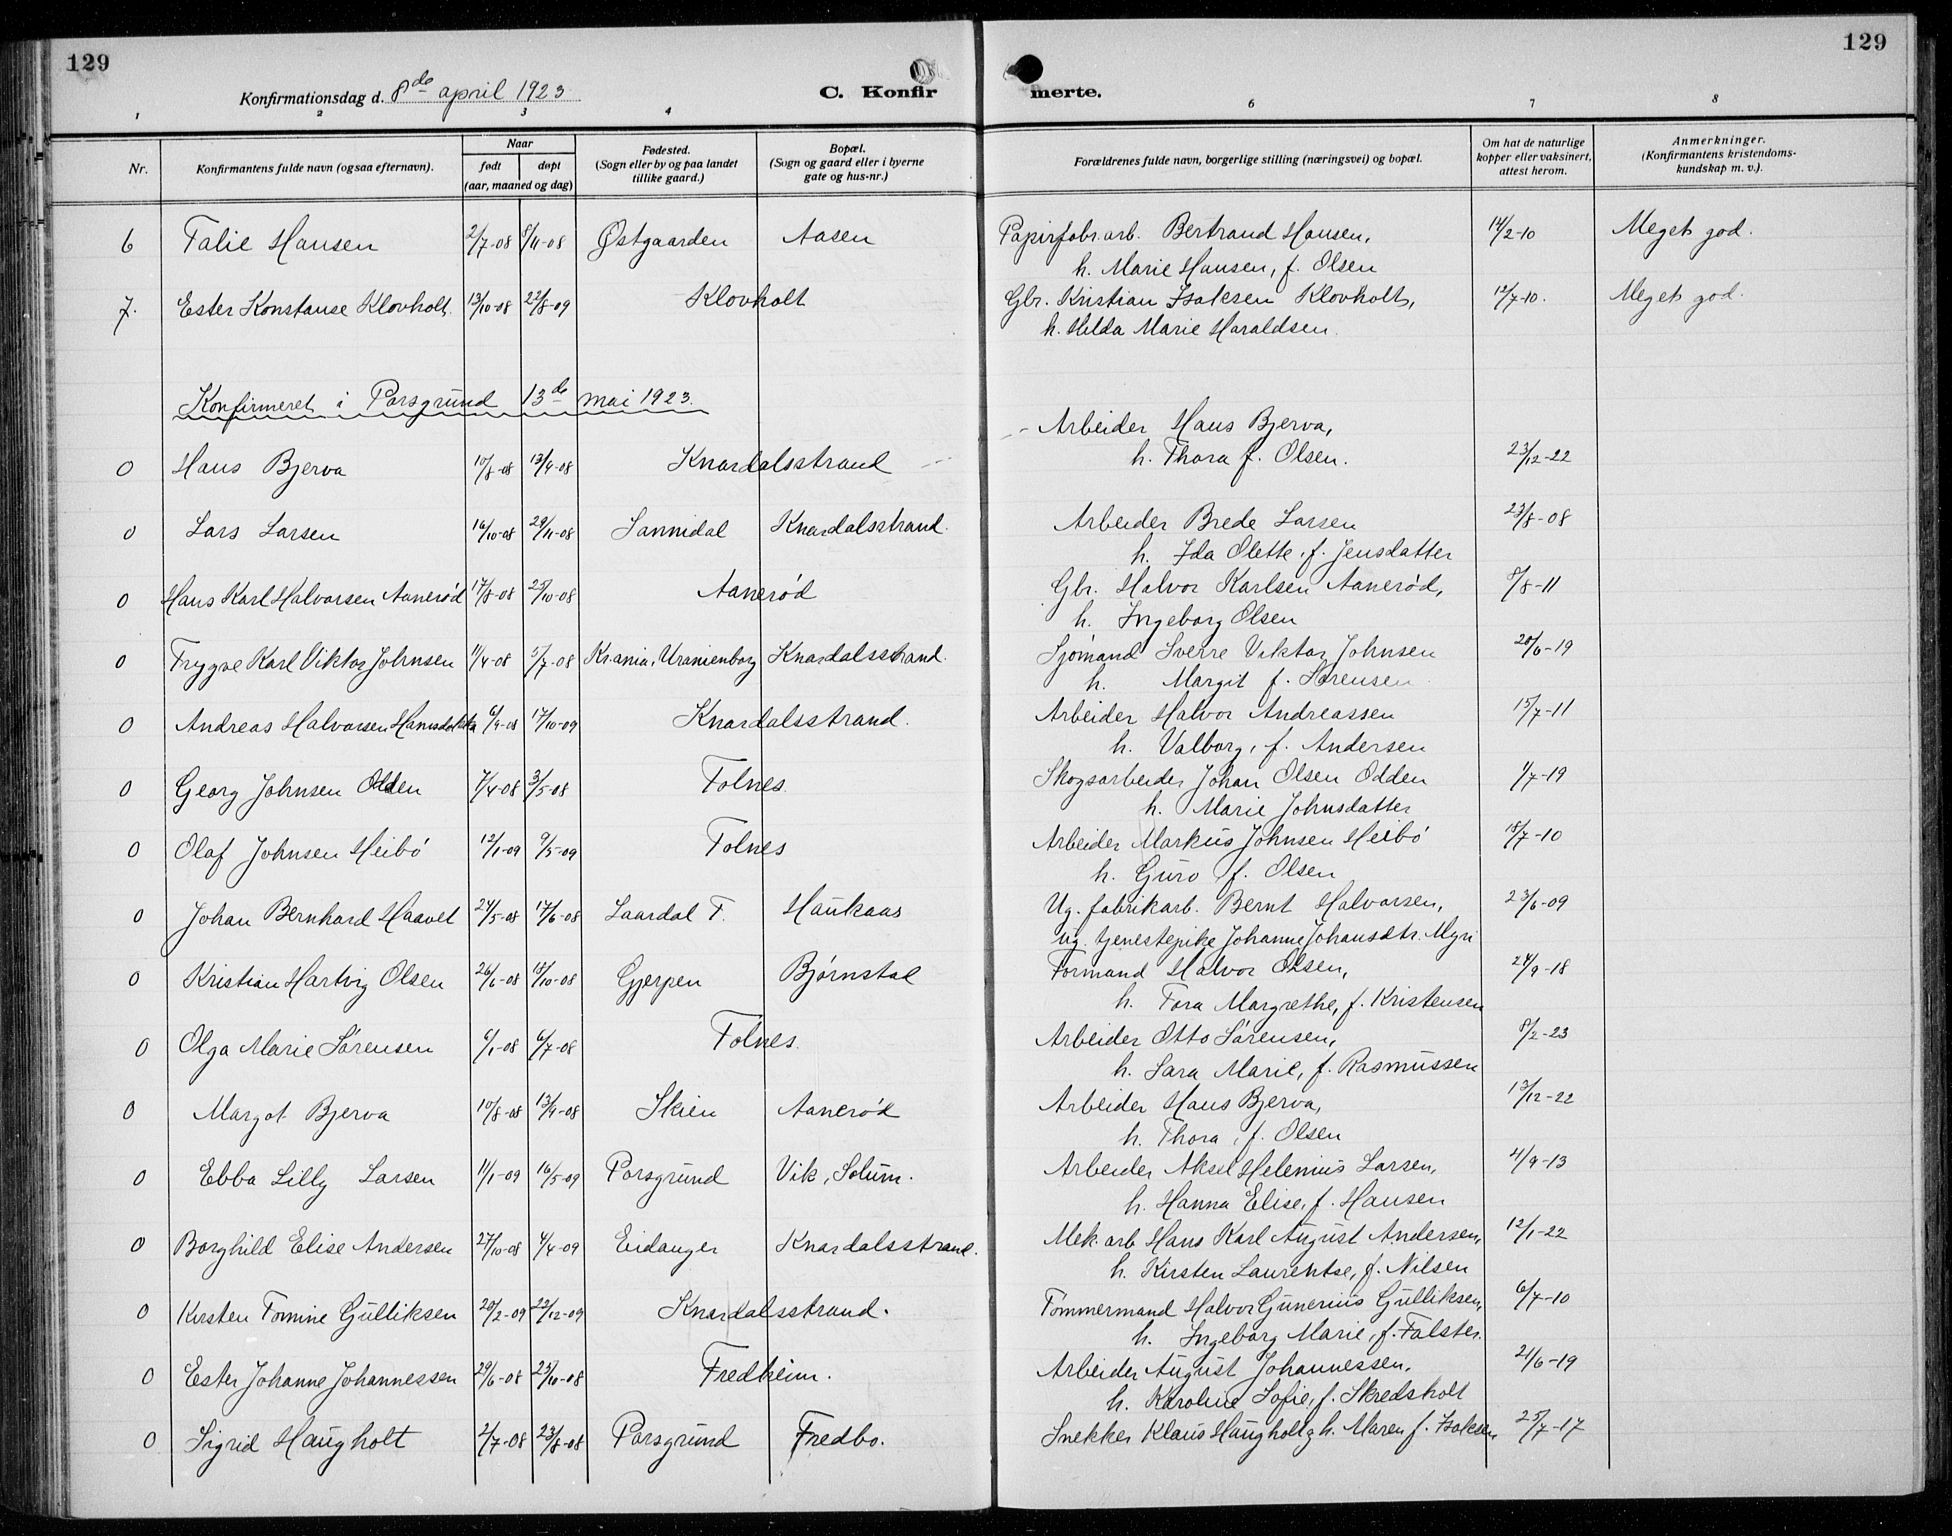 129
129
Konfirmationsdag d. 8de april 1923
C. Konfirmerte.
1 2 3 4 6 7 8
Nr.
Konfirmantens fulde navn (ogsaa efternavn).
Naar
født
døpt
(aar, maaned og dag)
Fødested.
(Sogn eller by og paa landet
tillike gaard.)
Bopæl.
(Sogn og gaard eller i byerne
gate og hus-nr.)
Forældrenes fulde navn, borgerlige stilling (næringsvei) og bopæl.
Om hat de naturlige
kopper eller vaksinert,
attest herom.
Anmerkninger.
(Konfirmantens kristendoms-
kundskap m. v.).
6 Talie Hansen 2/7-08 8/11-08 Østgaarden Aasen Papirfabr.arb. Bertrand Hansen, 14/2-10 Meget god.
h. Marie Hansen, f. Olsen
7. Ester Konstanse Klovholt 13/10-08 22/8-09 Klovholt Gbr. Kristian Isaksen Klovholt, 12/7-10. Meget god.
h. Hilda Marie Haraldsen.
Konfirmeret i Porsgrund 13de mai 1923.
Arbeider Hans Bjerva,
0 Hans Bjerva 10/8-08 13/9-08 Knardalsstrand h. Thora f. Olsen. 23/12-22
0 Lars Larsen 16/10-08 29/11-08 Sannidal Knardalsstrand. Arbeider Brede Larsen 23/8-08
h. Ida Olette, f. Jensdatter
0 Hans Karl Halvorsen Aanerød 17/8-08 25/10-08 Aanerød Gbr. Halvor Karlsen Aanerød, 8/8-11
h. Ingeborg Olsen
0 Trygve Karl Viktor Johnsen 11/4-08 5/7-08 Kr.ania, Uranienborg Knardalsstrand. Sjømand Sverre Viktor Johnsen 20/6-19
h. Margit f. Sørensen
0 Andreas Halvorsen 6/9-08 17/10-09 Knardalsstrand. Arbeider Halvor Andreassen 15/7-11
h. Valborg, f. Andersen
0 Georg Johnsen Odden 7/4-08 3/5-08 Tolnes. Skogsarbeider Johan Olsen Odden 1/7-19
h. Marie Johnsdatter
0 Olaf Johnsen Heibø 12/1-09 9/5-09 Tolnes Arbeider Markus Johnsen Heibø 18/7-10
h. Guro f. Olsen
0 Johan Bernhard Haavet 24/5-08 17/6-08 Laardal T. Haukaas Ug. fabrikarb. Bernt Halvorsen, 23/6-09
ug. tjenestepike Johanne Johansdtr. Myri
0 Kristian Hartvig Olsen 26/6-08 18/10-08 Gjerpen Bjørnstal Formand Halvor Olsen, 24/9-18
h. Tora Margrethe, f. Kristensen
0 Olga Marie Sørensen 6/1-08 6/7-08 Tolnes. Arbeider Otto Sørensen, 8/2-23
h. Sara Marie, f. Rasmussen
0 Margot Bjerva 10/8-08 13/9-08 Skien Aanerød Arbeider Hans Bjerva, 13/12-22
h. Thora, f. Olsen
0 Ebba Lilly Larsen 11/1-09 16/5-09 Porsgrund Vik, Solum. Arbeider Aksel Helenius Larsen, 4/9-13
h. Hanna Elise, f. Hansen
0 Borghild Elise Andersen 27/10-08 4/4-09 Eidanger Knardalsstrand. Mek. arb Hans Karl August Andersen, 12/1-22
h. Kirsten Laurentse, f. Nilsen
0 Kirsten Tomine Gulliksen 20/2-09 22/12-09 Knardalsstrand. Tømmermand Halvor Gunerius Gulliksen, 6/7-10
h. Ingeborg Marie, f. Falster.
0 Ester Johanne Johannessen 29/6-08 23/10-08 Fredheim. Arbeider August Johannessen, 21/6-19
h. Karoline Sofie, f. Skredsholt
0 Sigrid Haugholt 2/7-08 23/8-08 Porsgrund Fredbo. Snekker Klaus Haugholt, h. Maren f. Isaksen 25/7-17